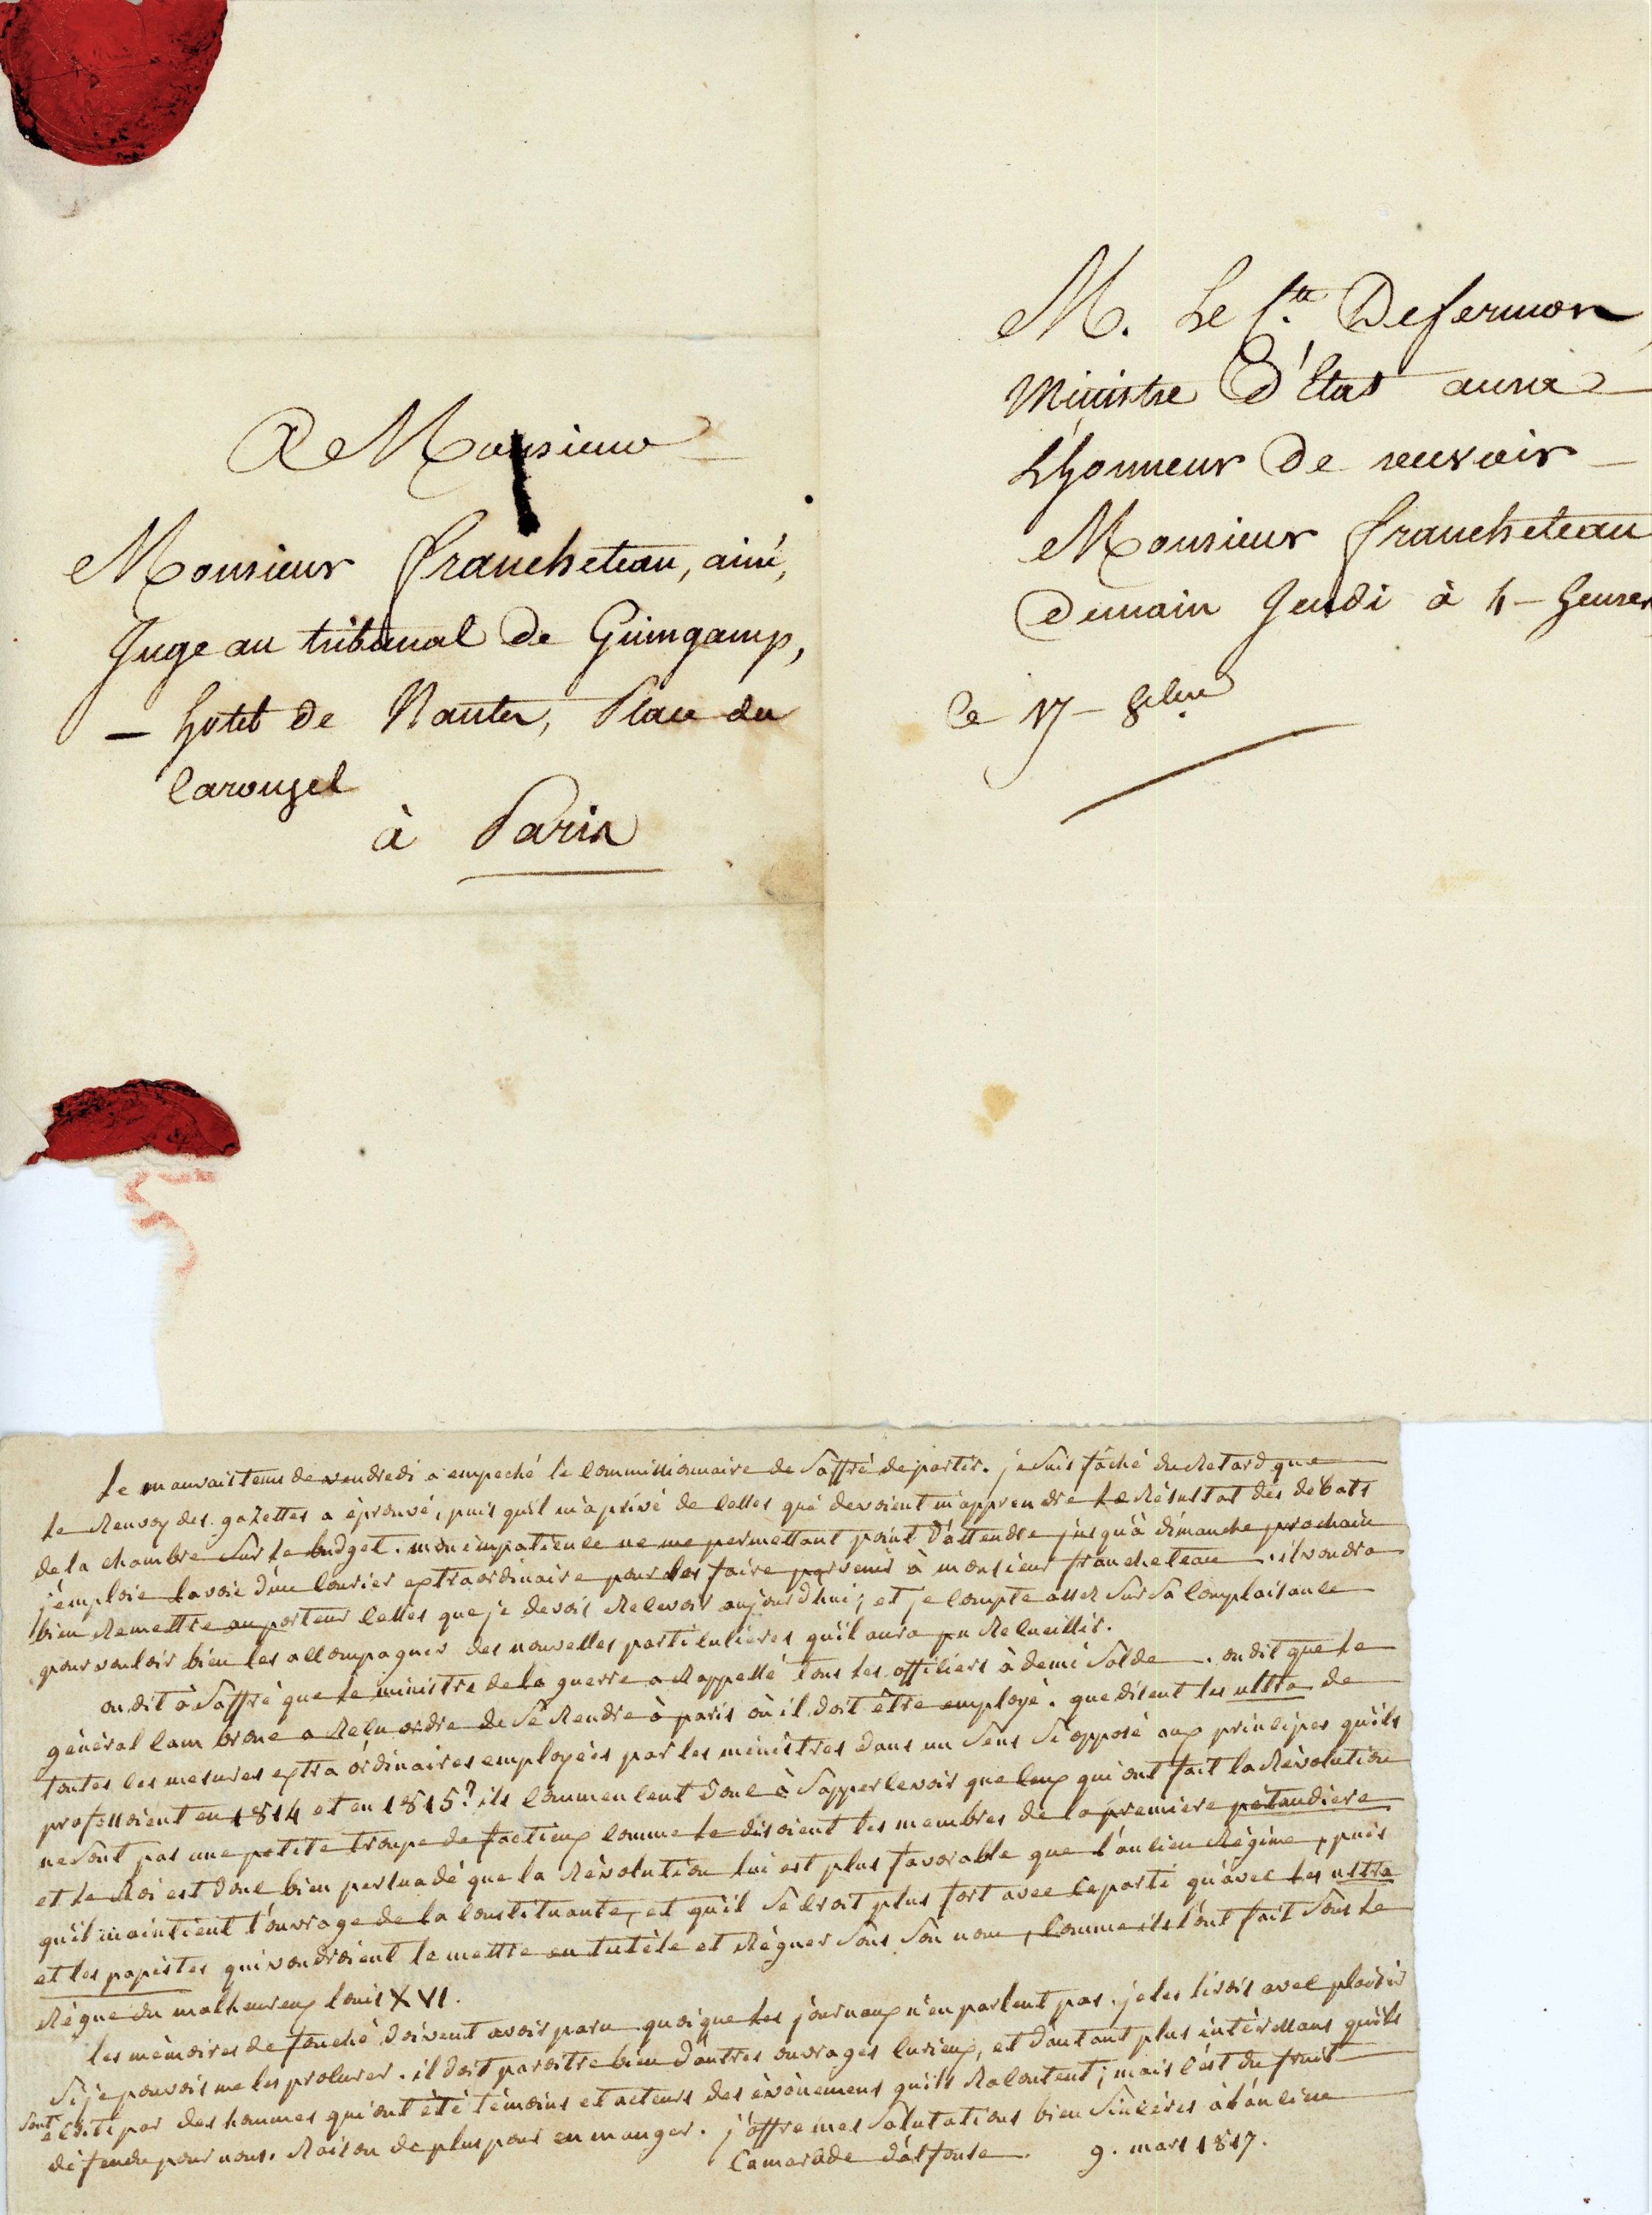 A Monsieur
Monsieur francheteau, ainé,
Juge au tribunal de Guingamp,
— hotel de Nantes, Place du
Carouzel
à Paris
M. Le Cte. Defermon,
Ministre d'Etat aura
L'honneur de recevoir
Monsieur francheteau
Demain Jeudi à 4 – heures
Ce 17 – 8bre
le mauvais tems de vendredi a empeché le commissionnaire de Saffré de partir. je suis fâché du Retard que
le Renvoy des gazettes a éprouvé, puis qu'il m'a privé de celles qui devoient m'apprendre le Résultat des débats
de la chambre sur le budget. mon impatience ne me permettant point d'attendre jusqu'à dimanche prochain
j'emploie la voie d'un courier extraordinaire pour les faire parvenir à monsieur francheteau. il voudra
bien Remettre au porteur celles que je devois Recevoir aujourdhui; et je compte assez sur sa complaisance
pour vouloir bien les accompagner des nouvelles particulieres qu'il aura pu Recueillir.
on dit à Saffré que le ministre de la guerre a Rappellé tous les officiers à demi solde. on dit que le
général cambrone a Reçu ordre de se Rendre à paris où il doit être employé. que disent les ultra de
toutes les mesures extraordinaires employées par les ministres dans un sens si opposé aux principes qu'ils
professoient en 1814 et en 1815? ils commencent donc à s'appercevoir que ceux qui ont fait la Révolution
ne sont pas une petite troupe de factieux comme le disoient les membres de la premiere petaudiere
et le Roi est donc bien persuadé que la Révolution lui est plus favorable que l'ancien Régime, puis
qu'il maintient l'ouvrage de la constituante, et qu'il se croit plus fort avec ce parti qu'avec les ultra
et les papistes qui voudroient le mettre en tutèle et Régner sous son nom, comme ils l'ont fait sous le
Règne du malheureux louis XVI.
les mémoires de fouché doivent avoir paru quoique les journaux n'en parlent pas. je les lirois avec plaisir
si je pouvois me les procurer. il doit paroitre bien d'autres ouvrages curieux, et d'autant plus intéressans qu'ils
sont écrits par des hommes qui ont été témoins et acteurs des évènemens qu'ils Racontent; mais c'est du fruit
défendu pour nous. Raison de plus pour en manger. j'offre mes salutations bien sincères à l'ancien
Camarade d'alfonse. 9. mars 1817.